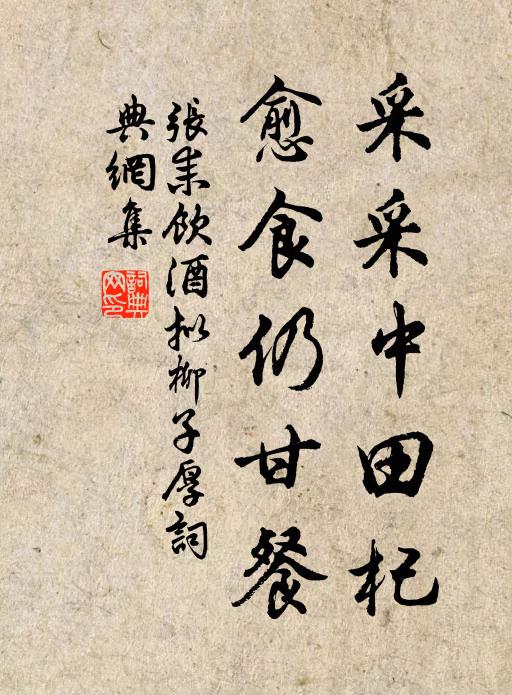 采采中田杞
愈食仍甘餐
張耒飲酒擬柳子厚詞
典網集
詞典網印